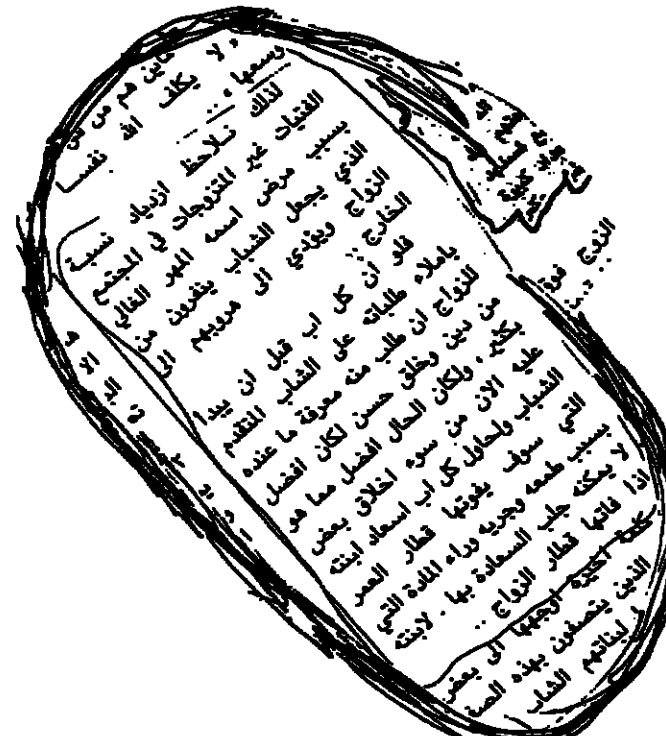 فاين هم من من
« لا يكلف الله نفسا
وسعها » ..
لذلك نلاحظ ازدياد نسبة
الفتيات غير المتزوجات في المجتمع
بسبب مرض اسمه المهر الغالي
الذي يجعل الشباب ينفرون من
الزواج ويؤدي الى هروبهم الى
الخارج ..
فلو أن كل اب قبل ان يبدا
باملاء طلباته على الشاب المتقدم
للزواج ان طلب منه معرفة ما عنده
من دين وخلق حسن لكان افضل
بكثير ، ولكان الحال افضل مما هو
عليه الان من سوء اخلاق بعض
الشباب ولحاول كل اب اسعاد ابنته
التي سوف يفوتها قطار العمر
بسبب طمعه وجريه وراء المادة التي
لا يمكنه جلب السعادة بها . لابنته
اذا فاتها قطار الزواج ..
كلمة اخيرة اوجهها الى بعض
الذين يتصفون بهذه الصة
لبناتهم الشاب
الزوج